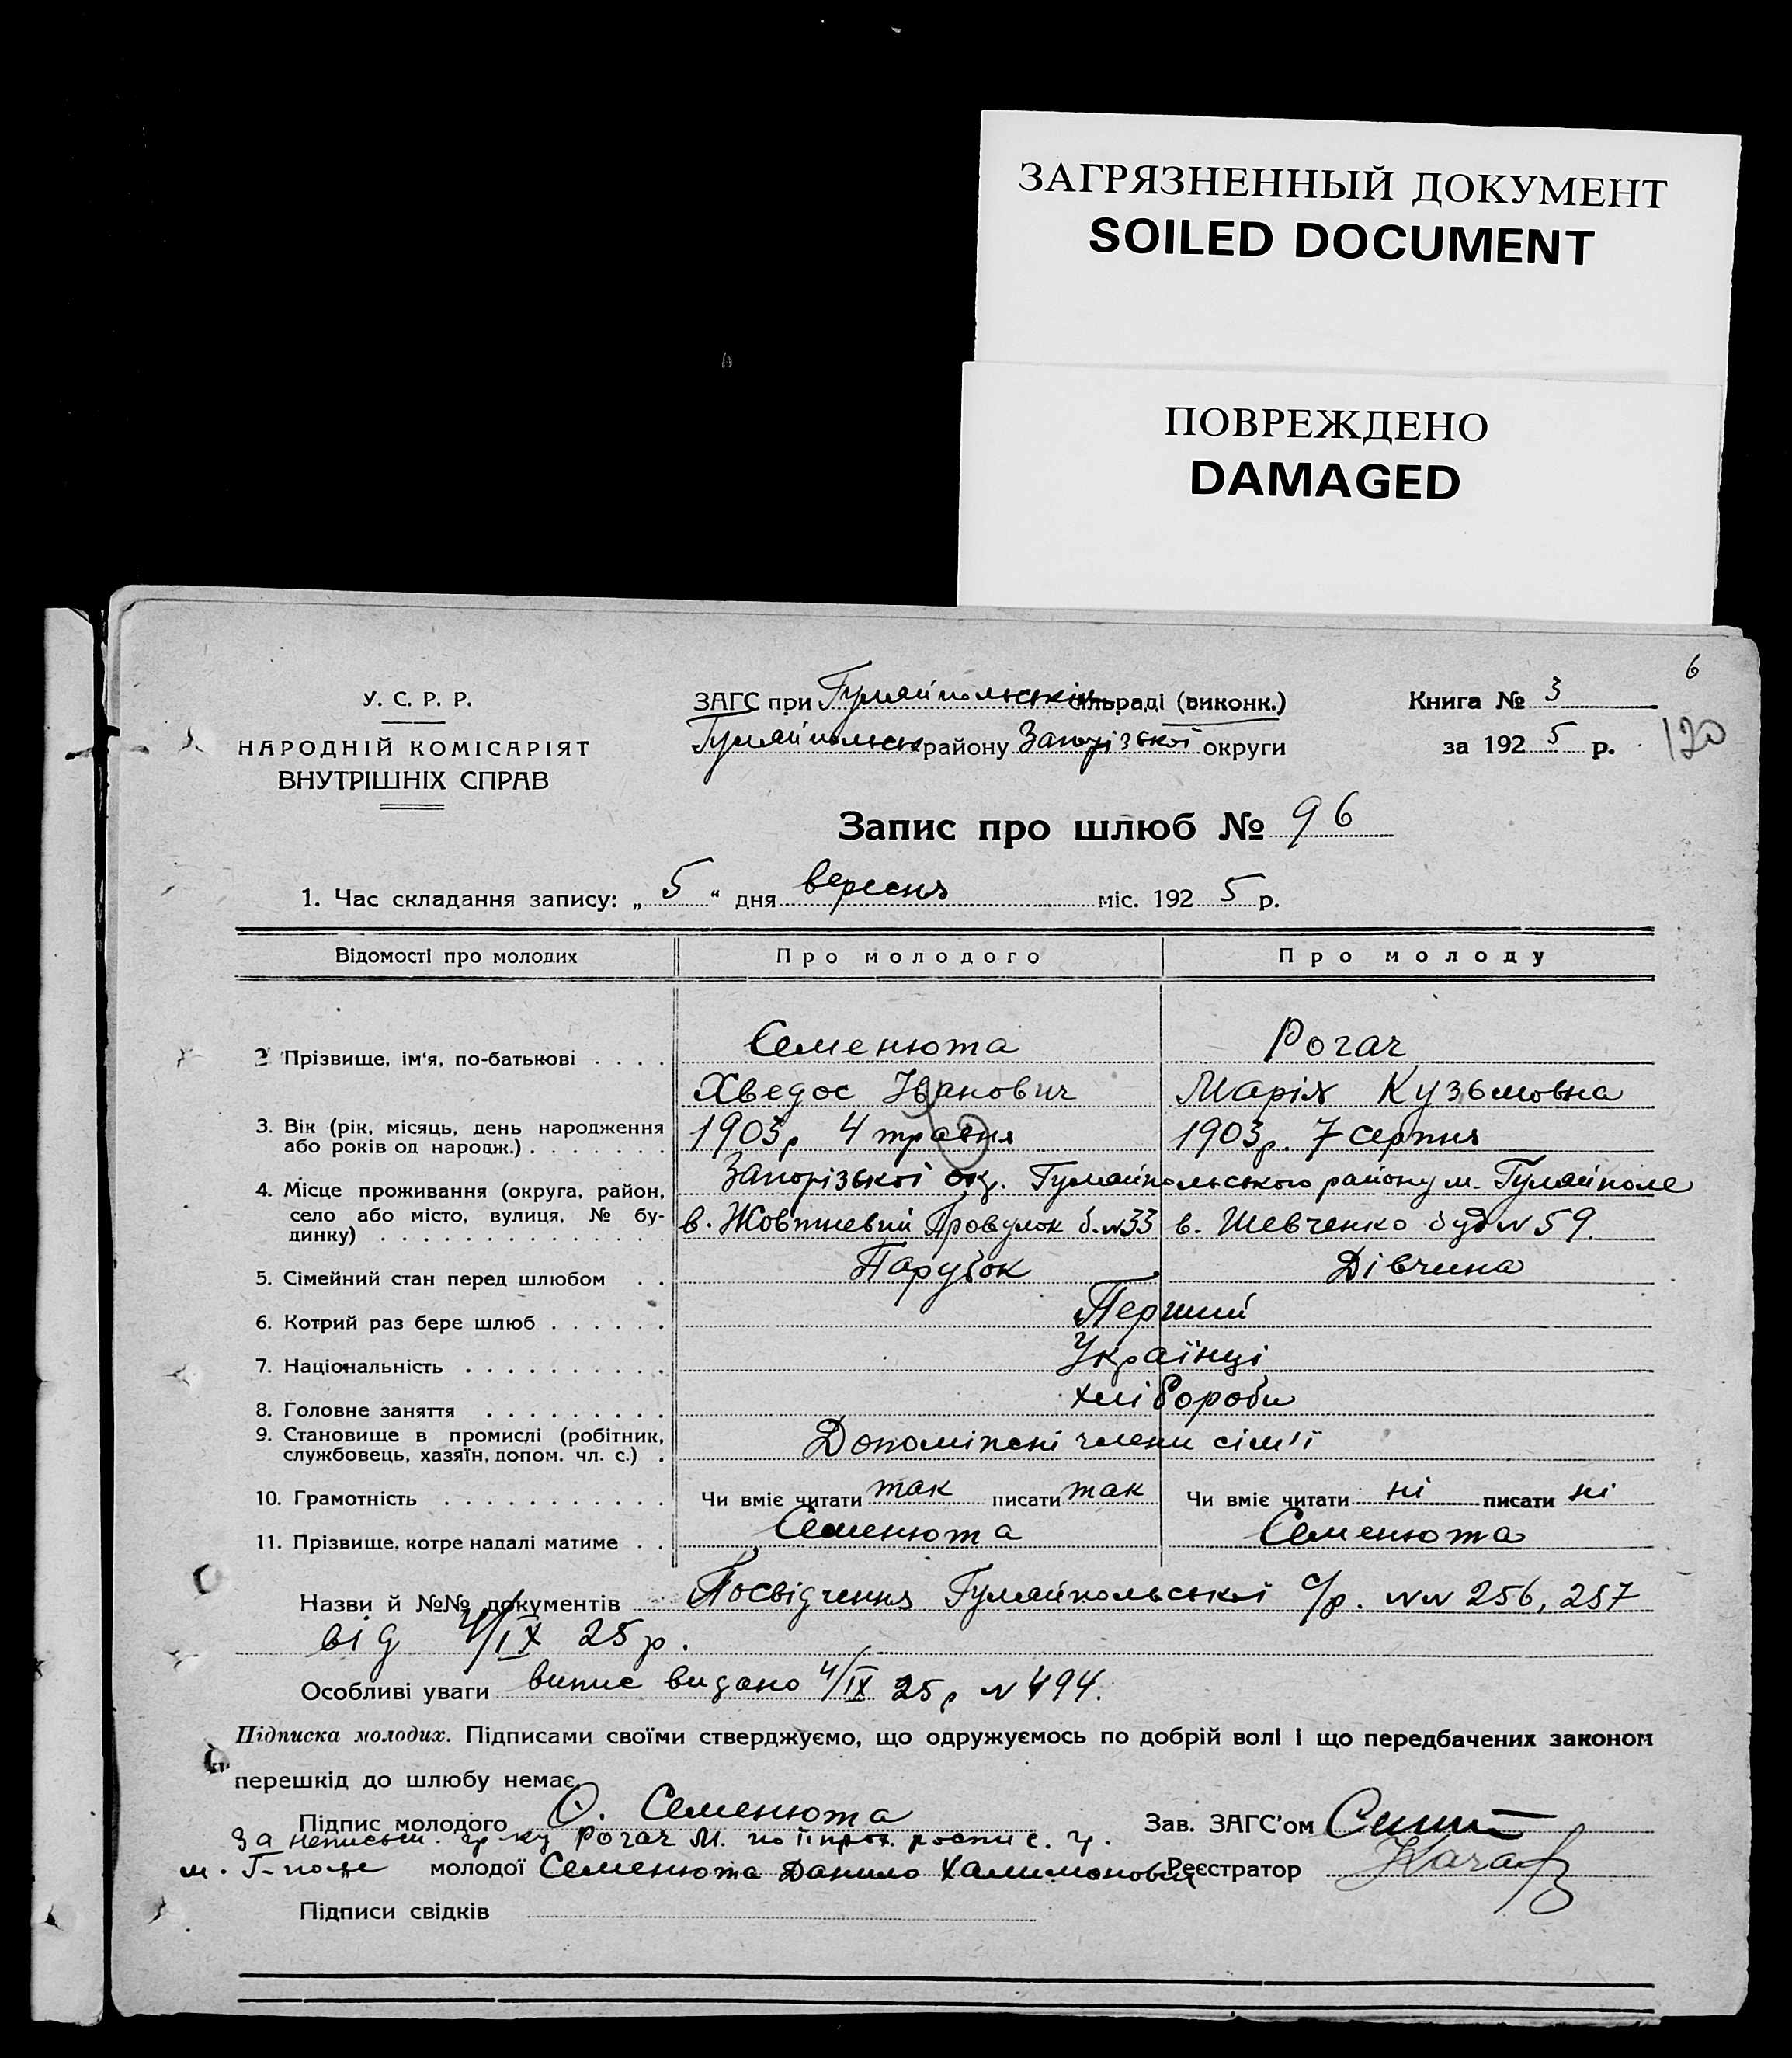 ЗАГРЯЗНЕННЫЙ ДОКУМЕНТ
SOILED DOCUMENT
ПОВРЕЖДЕНО
DAMAGED
6
У. С. Р. Р.
НАРОДНІЙ КОМІСАРІЯТ
ВНУТРІШНІХ СПРАВ
ЗАГС при Гуляйпольськім сільраді (виконк.)
Гуляйпольськ району Запорізської округи
Книга № 3
за 1925 р.
120
Запис про шлюб № 96
1. Час складання запису: „5“ дня вересня міс. 1925 р.
Відомості про молодих Про молодого Про молоду
2 Прізвище, ім'я, по-батькові . . . . Семенюта Рогач
Хведос Іванович Марія Кузьмовна
3. Вік (рік, місяць, день народження або років од народж.) . . . . . . . 1903р 4 травня 1903р. 7 серпня
4. Місце проживання (округа, район, село або місто, вулиця, № будинку) . . . . . . . . . . . . . . Запорізської окр. Гуляйпольського району м. Гуляйполе
в. Жовтневий Провулок б. № 33 в. Шевченко буд № 59.
5. Сімейний стан перед шлюбом . . Парубок Дівчина
6. Котрий раз бере шлюб . . . . . . Перший
7. Національність . . . . . . . . . . Українці
8. Головне заняття . . . . . . . . . хлібороби
9. Становище в промислі (робітник, службовець, хазяїн, допом. чл. с.) . Допоміжні члени сім'ї
10. Грамотність . . . . . . . . . . . Чи вміє читати так писати так Чи вміє читати ні писати ні
11. Прізвище, котре надалі матиме . . Семенюта Семенюта
Назви й №№ документів Посвідчення Гуляйпольської с/р. №№ 256, 257
від 4/IX 25 р.
Особливі уваги випис видано 4/IX 25 р № 494.
Підписка молодих. Підписами своїми стверджуємо, що одружуємось по добрій волі і що передбачених законом
перешкід до шлюбу немає.
Підпис молодого Ѳ. Семенюта Зав. ЗАГС'ом
За неписьм. гр-ку Рогач М. по її прох. розпис. гр.
м. Г-поле молодої Семенюта Данило Халимонович Реєстратор
Підписи свідків